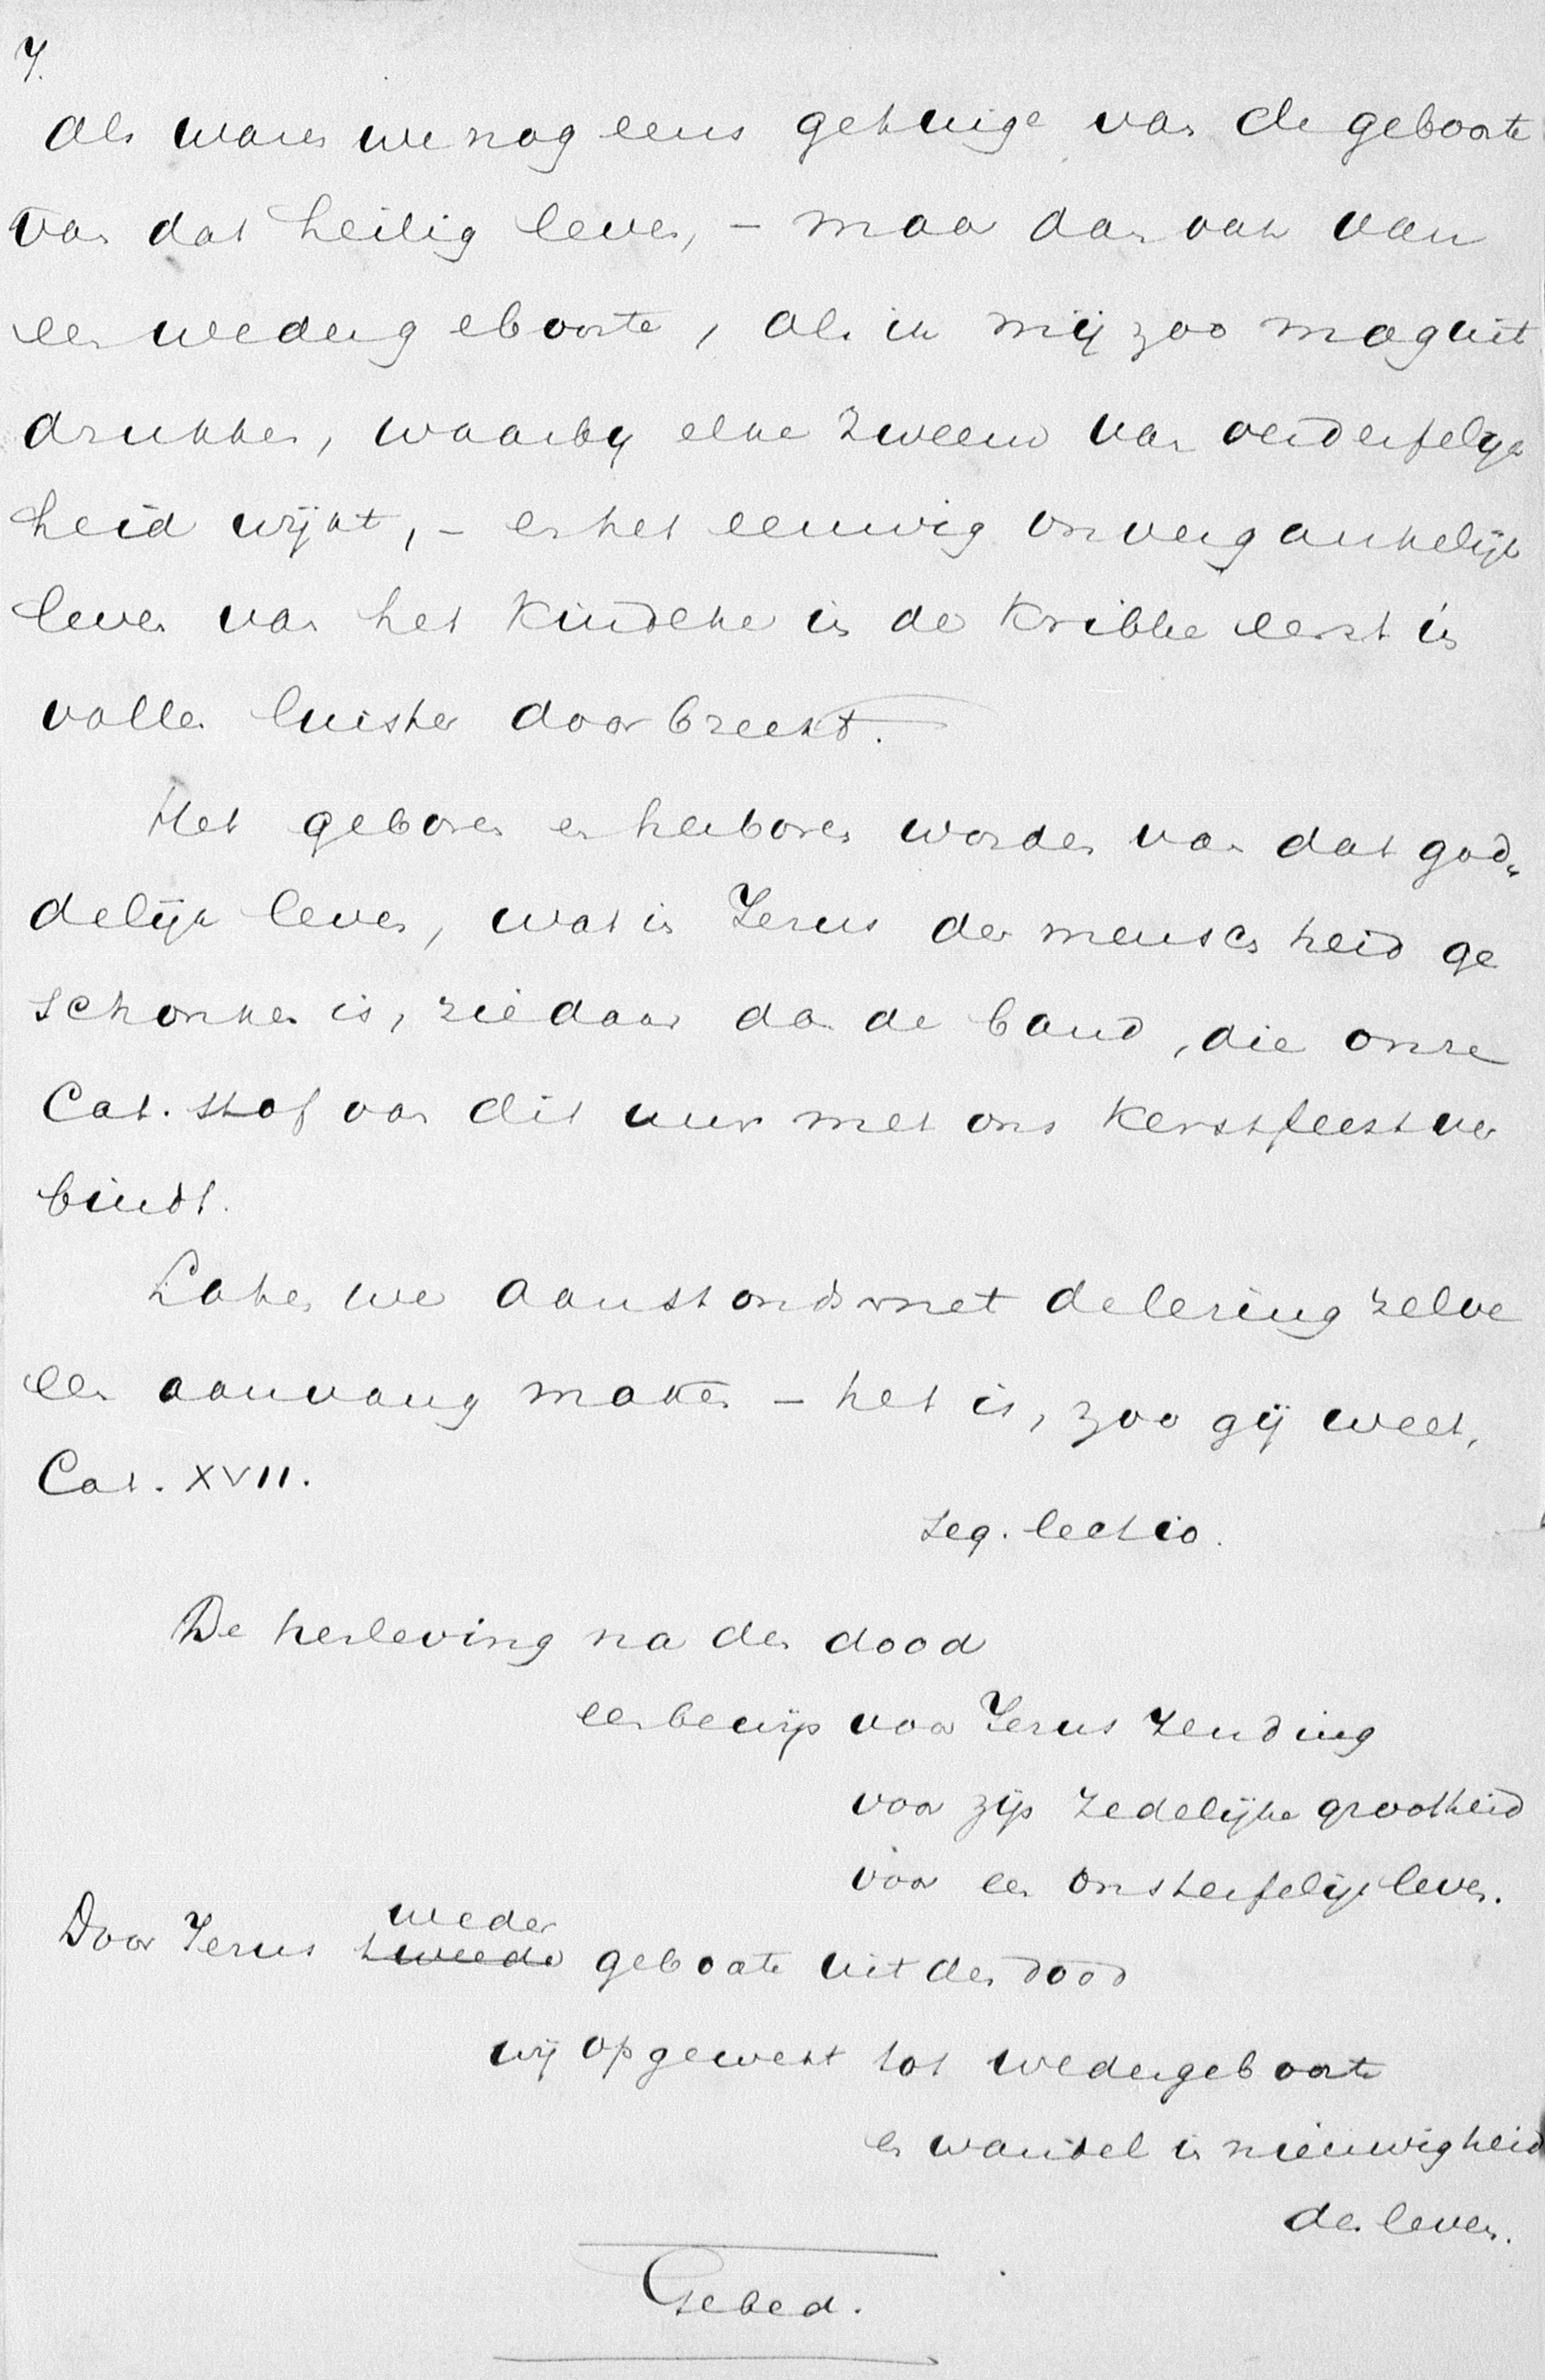 7.
als waren we nog eens getuige van de geboorte
van dat heilig leven, - maar dan ook van
een wedergeboorte, als ik mij zoo mag uit
drukken, waarbij elke zweem van verderfelijk
heid wijkt, - en het eeuwig onvergankelijk
leven van het kindeke in de kribbe eerst in
vollen luister doorbreekt.
Het geboren en herboren worden van dat god„
delijk leven, wat in Jezus der menschheid ge
schonken is, ziedaar dan de band, die onze
Cat. stof van dit uur met ons Kerstfeest ver
bindt.
Laten we aanstonds met de lezing zelve
een aanvang maken - het is, zoo gij weet,
Cat. XVII.
seq. lectio.
De herleving na den dood
een bewijs voor Jezus zending
voor zijn zedelijke grootheid
voor een onsterfelijk leven.
weder
Door Jezus tweede geboorte uit den dood
wij opgewekt tot wedergeboorte
en wandel in nieuwigheid
des levens.
Gebed.